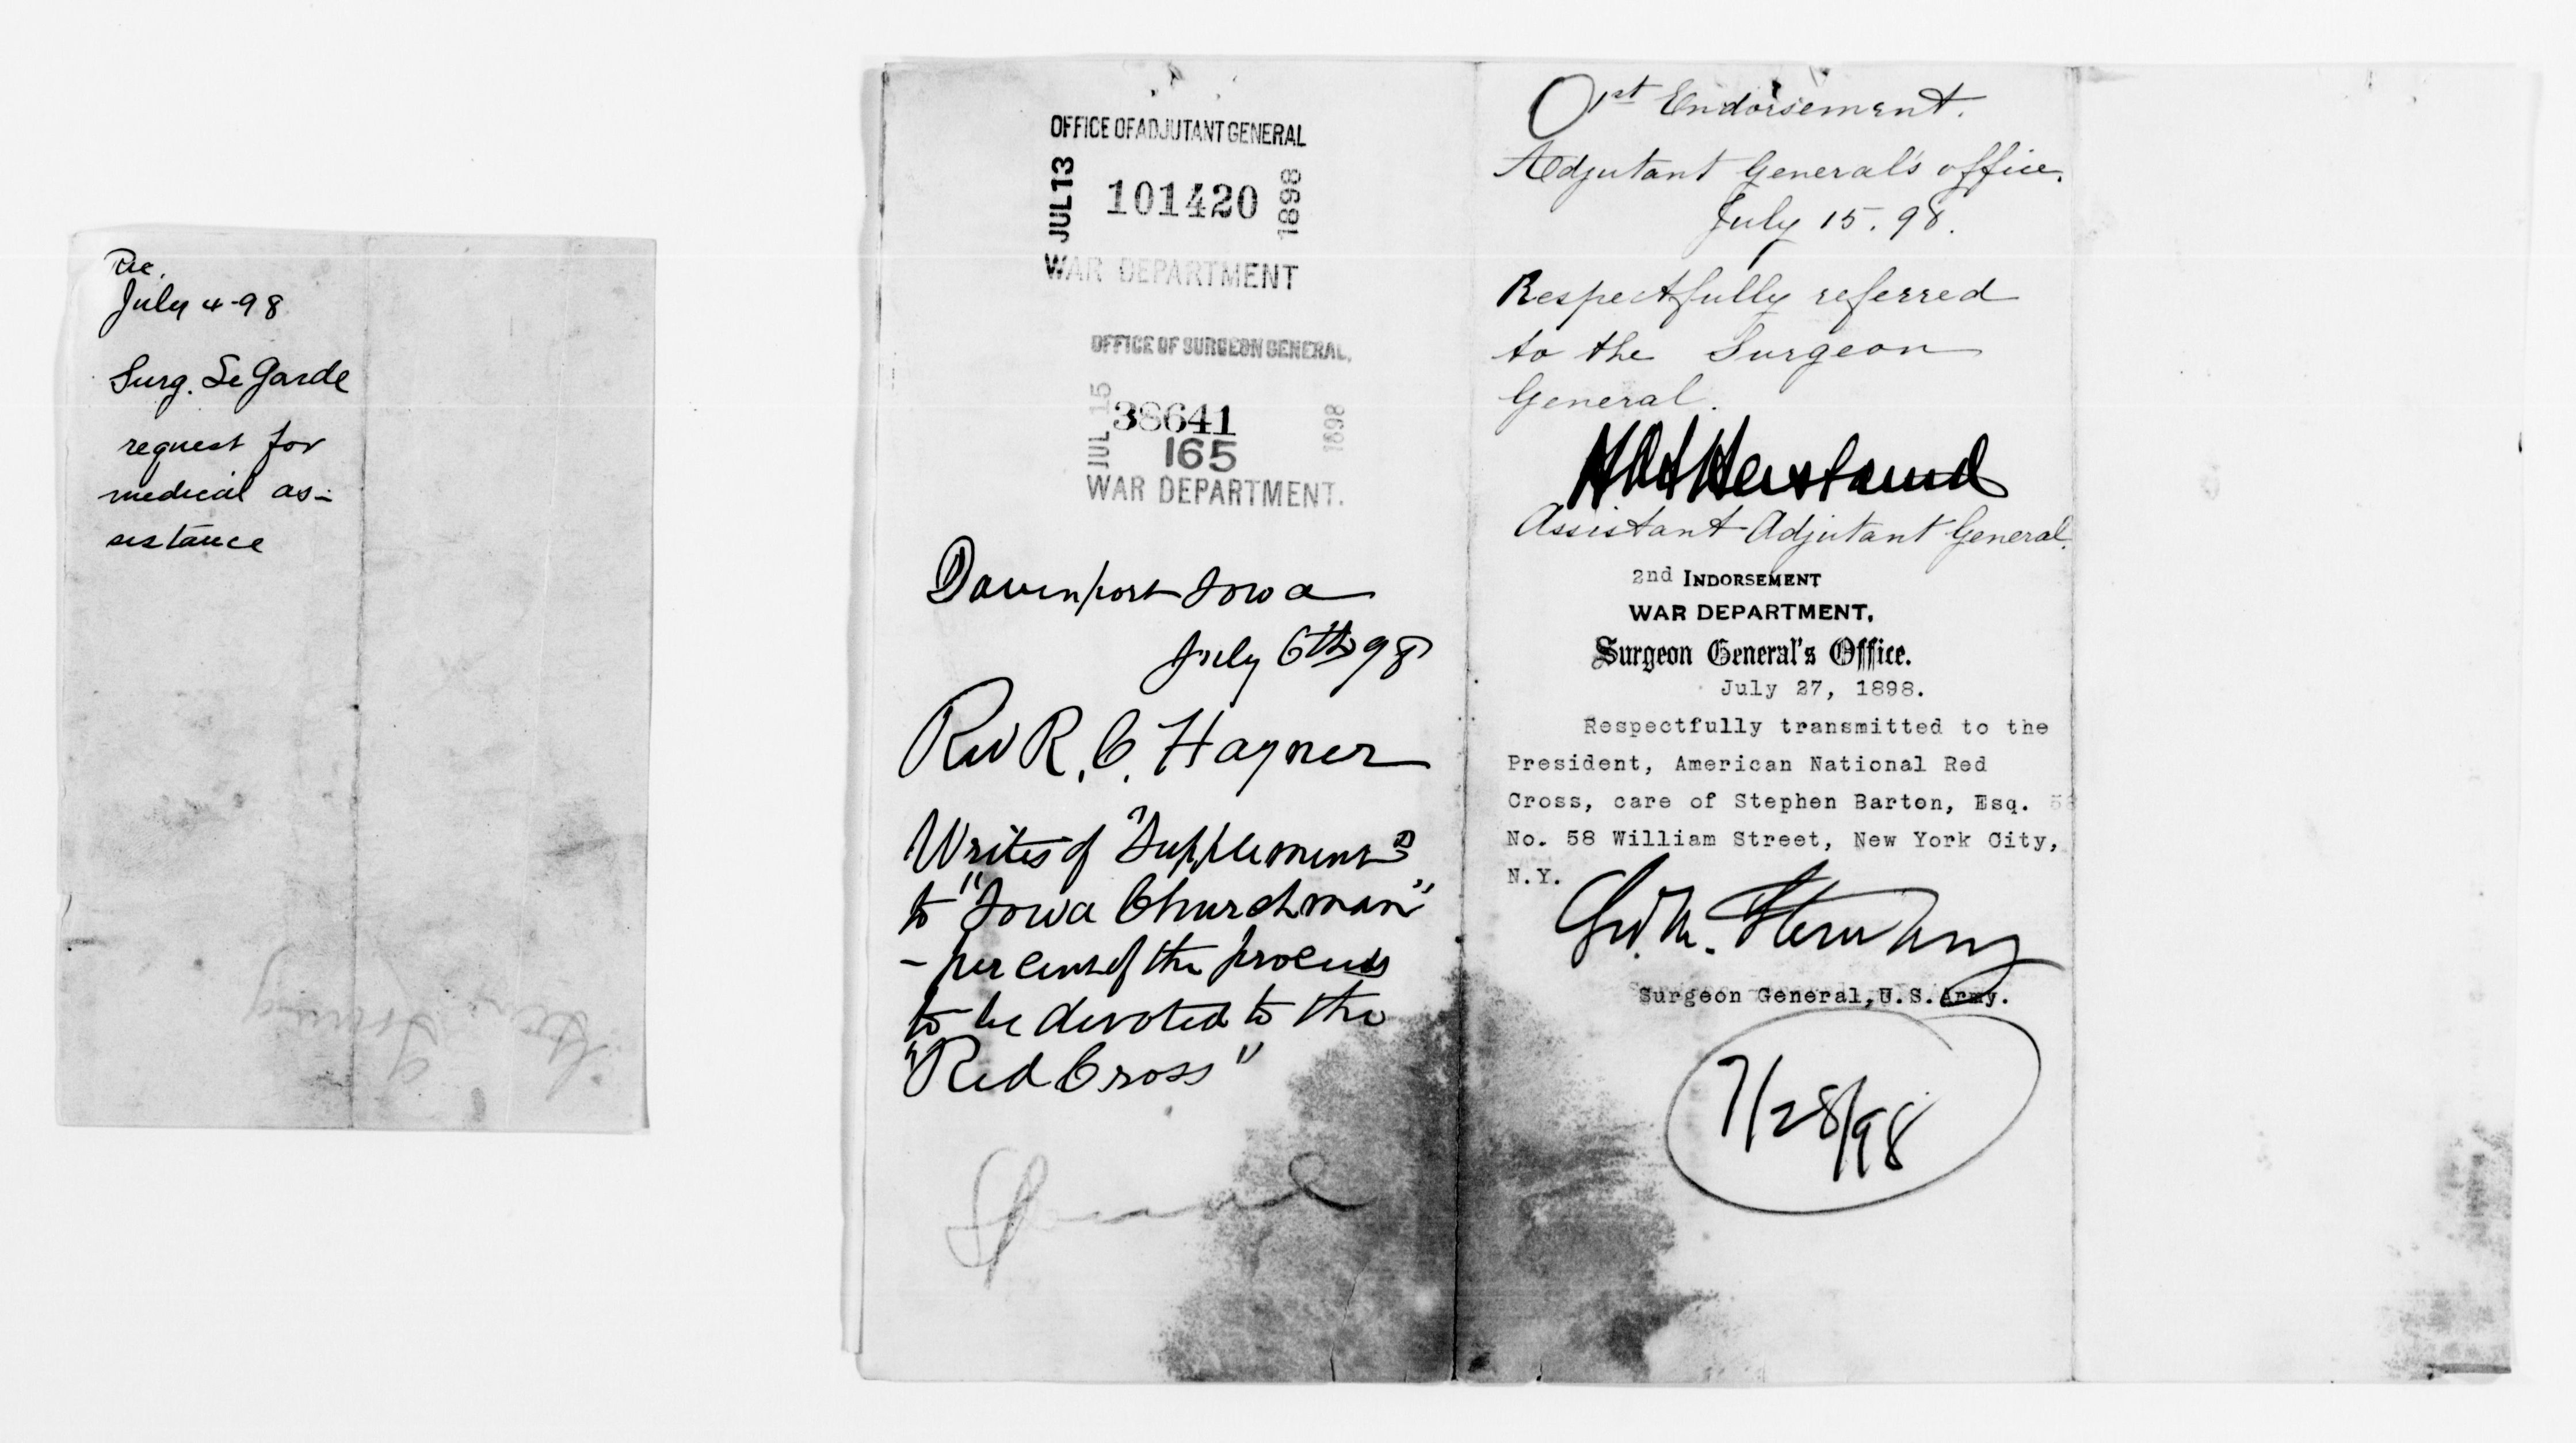 Rec.
July 4-98
Surg. Le Garde
request for
medical as-
sistance
OFFICE OF ADJUTANT GENERAL
JUL 13 101420 1898
WAR DEPARTMENT
OFFICE OF SURGEON GENERAL,
JUL 15 38641 1898
165
WAR DEPARTMENT.
Davenport Iowa
July 6th 98
Rev R. C. Hayner
Writes of "Supplement"
to "Iowa Churchman"
- per cent of the proceeds
to be devoted to the
"Red Cross"
1st Endorsement.
Adjutant General's office.
July 15. 98.
Respectfully referred
to the Surgeon
General.
Assistant Adjutant General.
2nd INDORSEMENT
WAR DEPARTMENT,
Surgeon General's Office.
July 27, 1898.
Respectfully transmitted to the
President, American National Red
Cross, care of Stephen Barton, Esq. 58
No. 58 William Street, New York City,
N.Y.
Geo. M. Sternberg
Surgeon General, U.S. Army.
7/28/98